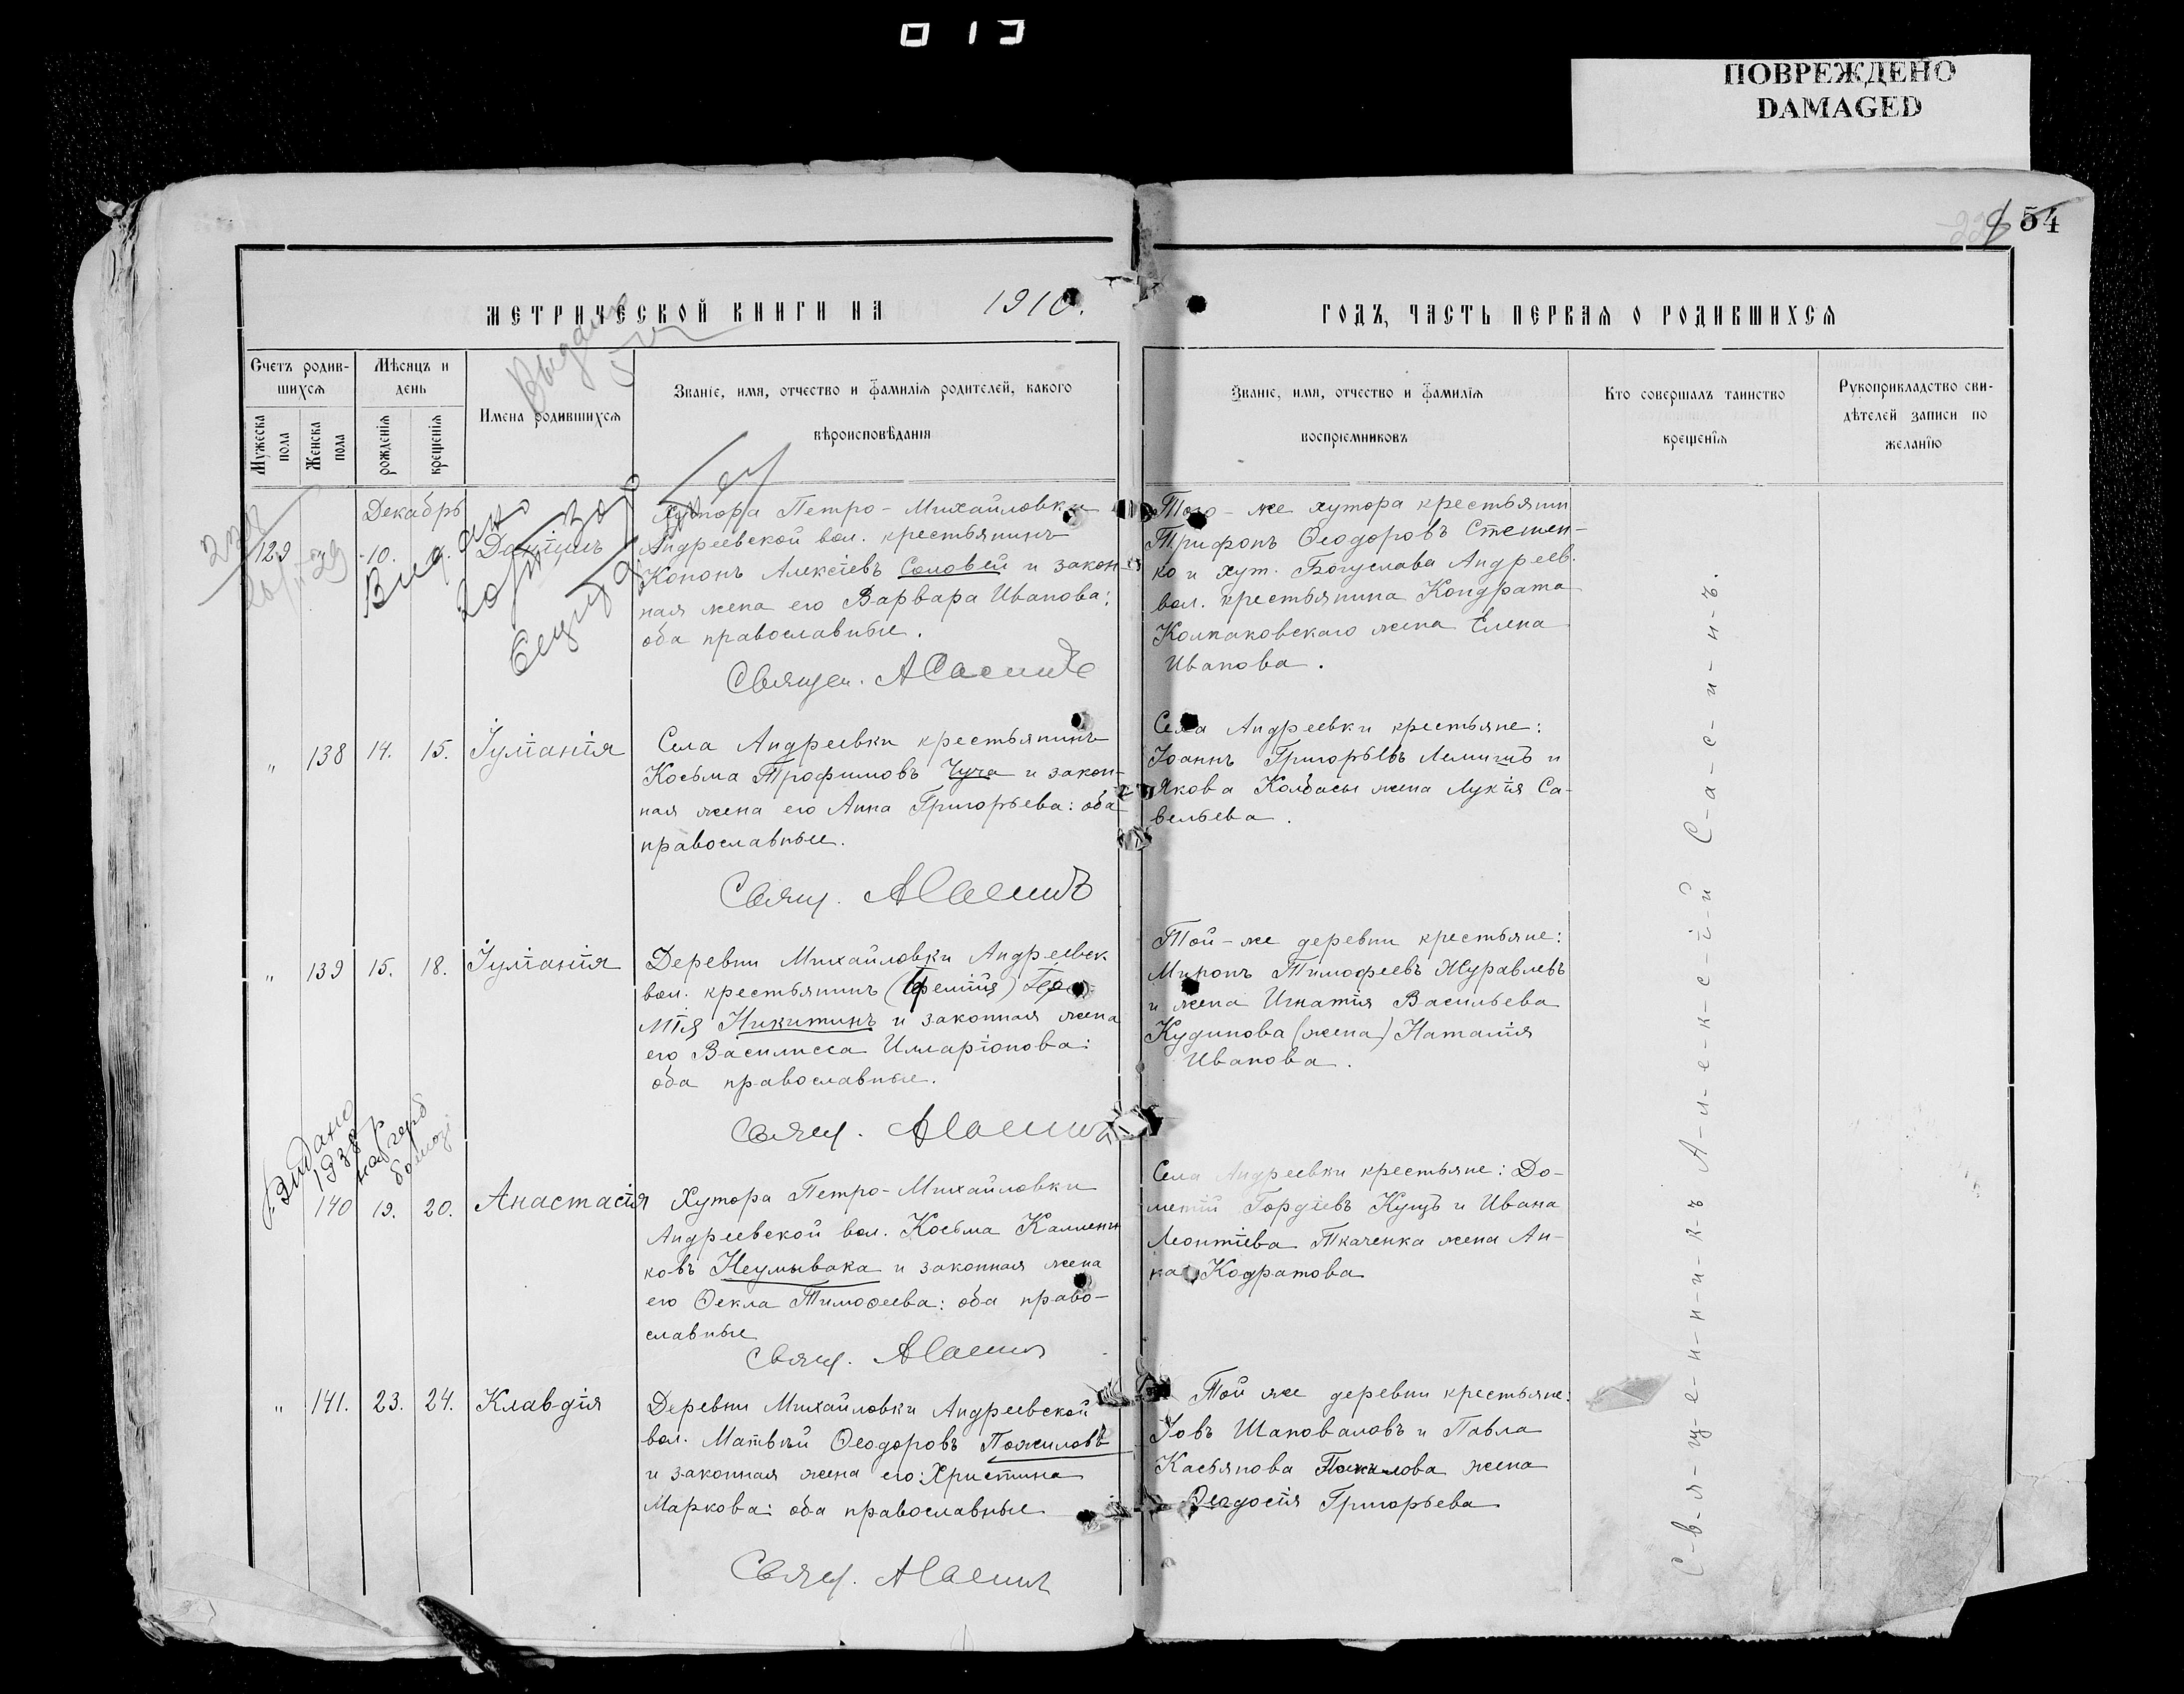 013
ПОВРЕЖДЕНО
DAMAGED
54
МЕТРИЧЕСКОЙ КНИГИ НА 1910.
ГОДЪ, ЧАСТЬ ПЕРВАЯ О РОДИВШИХСЯ
Счетъ родив-
шихся
Мѣсяцъ и
день
Имена родившихся
Званіе, имя, отчество и фамилія родителей, какого
вѣроисповѣданія
Мужеска
пола
Женска
пола
рожденія
крещенія
Званіе, имя, отчество и фамилія
воспріемниковъ
Кто совершалъ таинство
крещенія
Рукоприкладство сви-
дѣтелей записи по
желанію
Декабрь
129
10.
Даніилъ
Хутора Петро-Михайловки
Андреевской вол. крестьянинъ
Кононъ Алексіевъ Соловей и закон-
ная жена его Варвара Иванова:
оба православные.
Священ. А Сасинъ
Того-же хутора крестьянин
Трифонъ Ѳеодоровъ Стешен-
ко и хут. Богуслава Андреев.
вол. крестьянина Кондрата
Колпаковскаго жена Елена
Иванова.
" 138 14. 15. Іуліанія
Села Андреевки крестьянинъ
Косьма Трофимовъ Чуча и закон-
ная жена его Анна Григорьева: оба
православные.
Свящ. А Сасинъ
Села Андреевки крестьяне:
Іоаннъ Григорьевъ Лемишъ и
Якова Колбасы жена Лукія Са-
вельева.
" 139 15. 18. Іуліанія
Деревни Михайловки Андреевск
вол. крестьянинъ
Никитинъ и законная жена
его Василисса Илларіонова:
оба православные.
Свящ. А Сасинъ
Той-же деревни крестьяне:
Миронъ Тимофеевъ Журавлевъ
и жена Игнатія Васильева
Кудинова (жена) Наталія
Иванова.
Видано
1938 р
140 19. 20. Анастасія
Хутора Петро-Михайловки
Андреевской вол. Косьма Каллени
ковъ Неумывака и законная жена
его Ѳекла Тимоѳеева: оба право-
славные
Свящ. А Сасинъ
Села Андреевки крестьяне: До-
метій Гордіевъ Кущъ и Ивана
Леонтіева Ткаченка жена Ан-
на Кодратова
" 141. 23. 24. Клавдія
Деревни Михайловки Андреевской
вол. Матвѣй Ѳеодоровъ Пожиловъ
и законная жена его: Христина
Маркова: оба православные
Свящ. А Сасинъ
Той же деревни крестьяне:
Іовъ Шаповаловъ и Павла
Касьянова жена
Ѳеодосія Григорьева
С-в-я-щ-е-н-н-и-к-ъ А-л-е-к-с-і-й С-а-с-и-н-ъ.